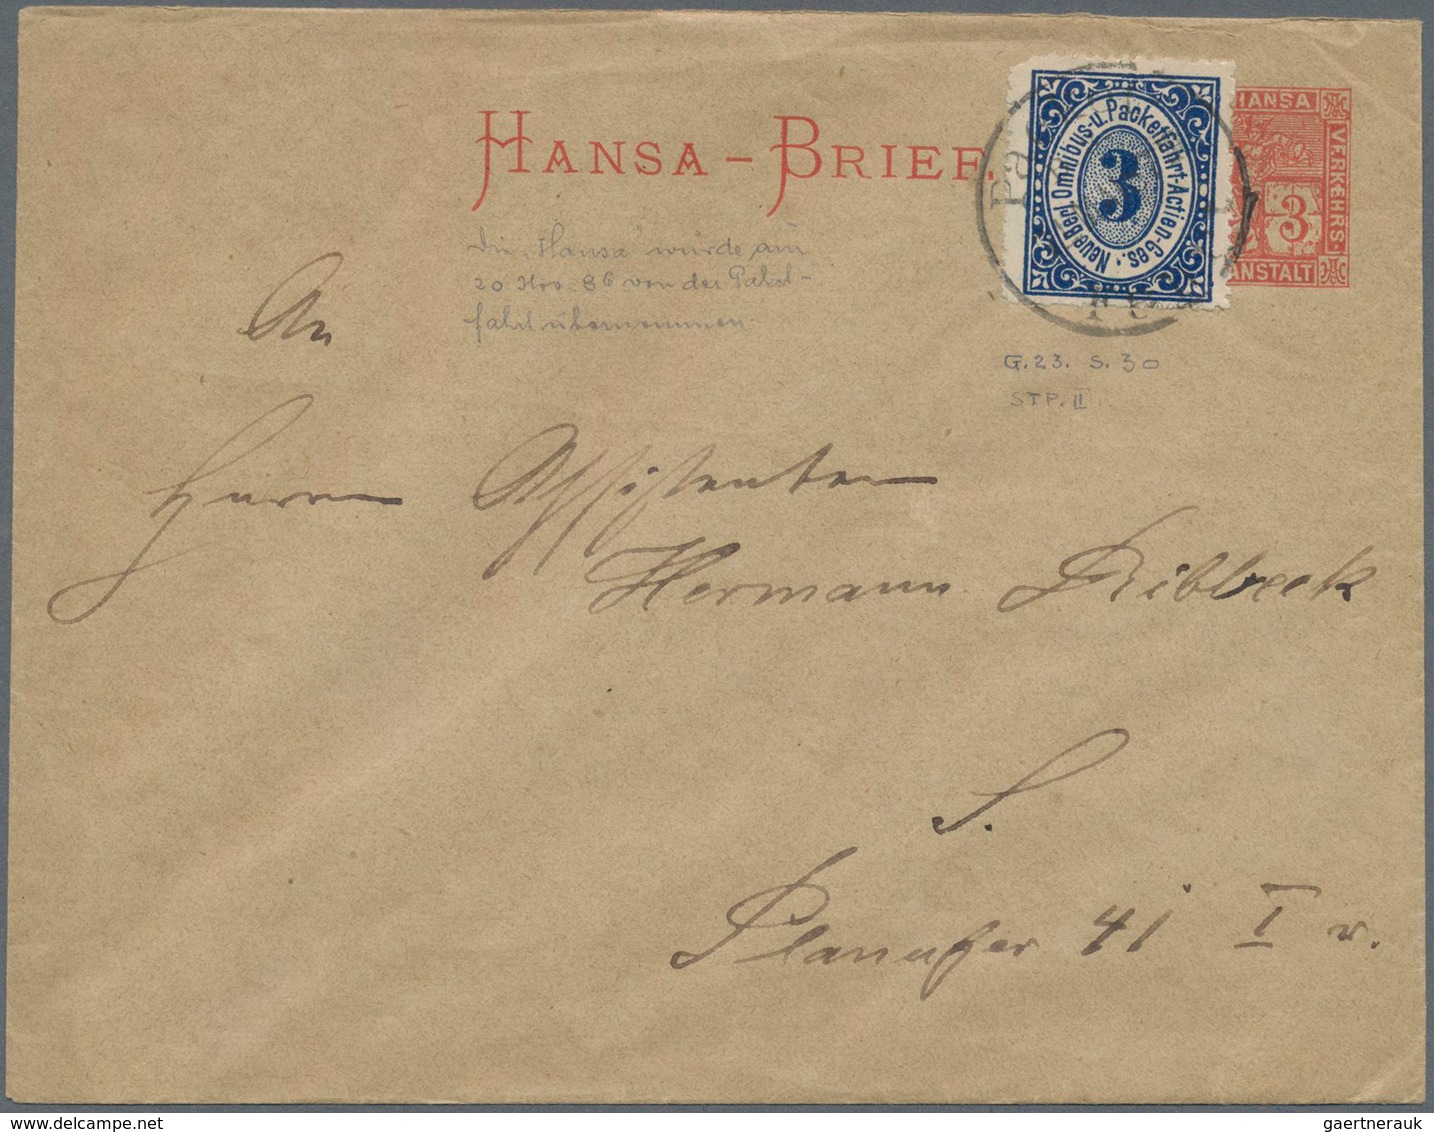 HANSA-BRIEF.
HANSA
VERKEHRS-
ANSTALT
3
Neue Berl. Omnibus-u. Packetfahrt-Actien-Ges.
3
Die "Hansa" wurde am
20 Nov. 86 von der Paket-
fahrt übernommen.
G. 23. S. 30
STP. II
An
Herrn Assistenten
Hermann Ribbeck
S.
Planufer 41 I r.
gaertnerauk